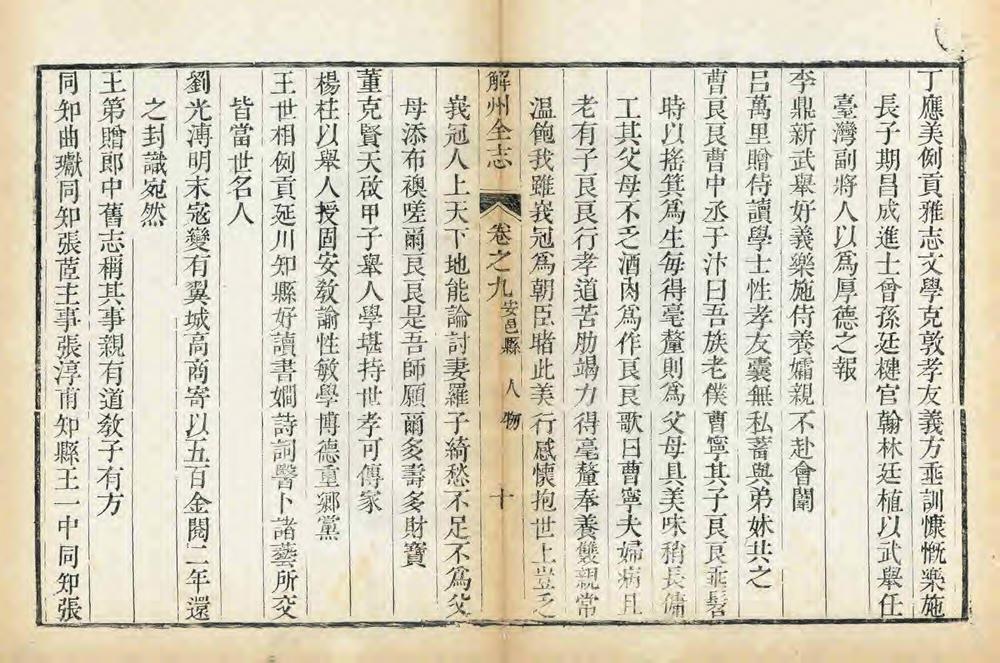 丁應美例貢雅志文學克敦孝友義方垂訓慷慨樂施
長子期昌成進士曾孫廷楗官翰林廷植以武舉任
臺灣副將人以為厚德之報
李鼎新武舉好義樂施侍養孀親不赴會闈
呂萬里贈侍讀學士性孝友囊無私蓄與弟妹共之
曹艮艮曹中丞于汴曰吾族老僕曹寧其子艮艮垂髫
時以搭箕為生每得毫釐則為父母具美味稍長傭
工其父母不乏酒肉為作艮艮歌曰曹寧夫婦病且
老有子艮艮行孝道苦肋竭力得毫釐奉養雙親常
溫飽我雖峩冠為朝臣睹此美行感懷抱世上豈乏
解州全志 卷之九 安邑縣 人物 十
峩冠人上天下地能論討妻羅子綺愁不足不為父
母添布襖嗟爾艮艮是吾師願爾多壽多財寶
董克賢天啟甲子舉人學堪持世孝可傳家
楊柱以舉人授固安敎諭性敏學博德重鄉黨
王世相例貢延川知縣好讀書嫺詩詞醫卜諸藝所交
皆當世名人
劉光溥明末寇變有翼城高商寄以五百金閱二年還
之封識宛然
王第贈郎中舊志稱其事親有道敎子有方
同知曲巘同知張莖主事張淳甫知縣王一中同知張